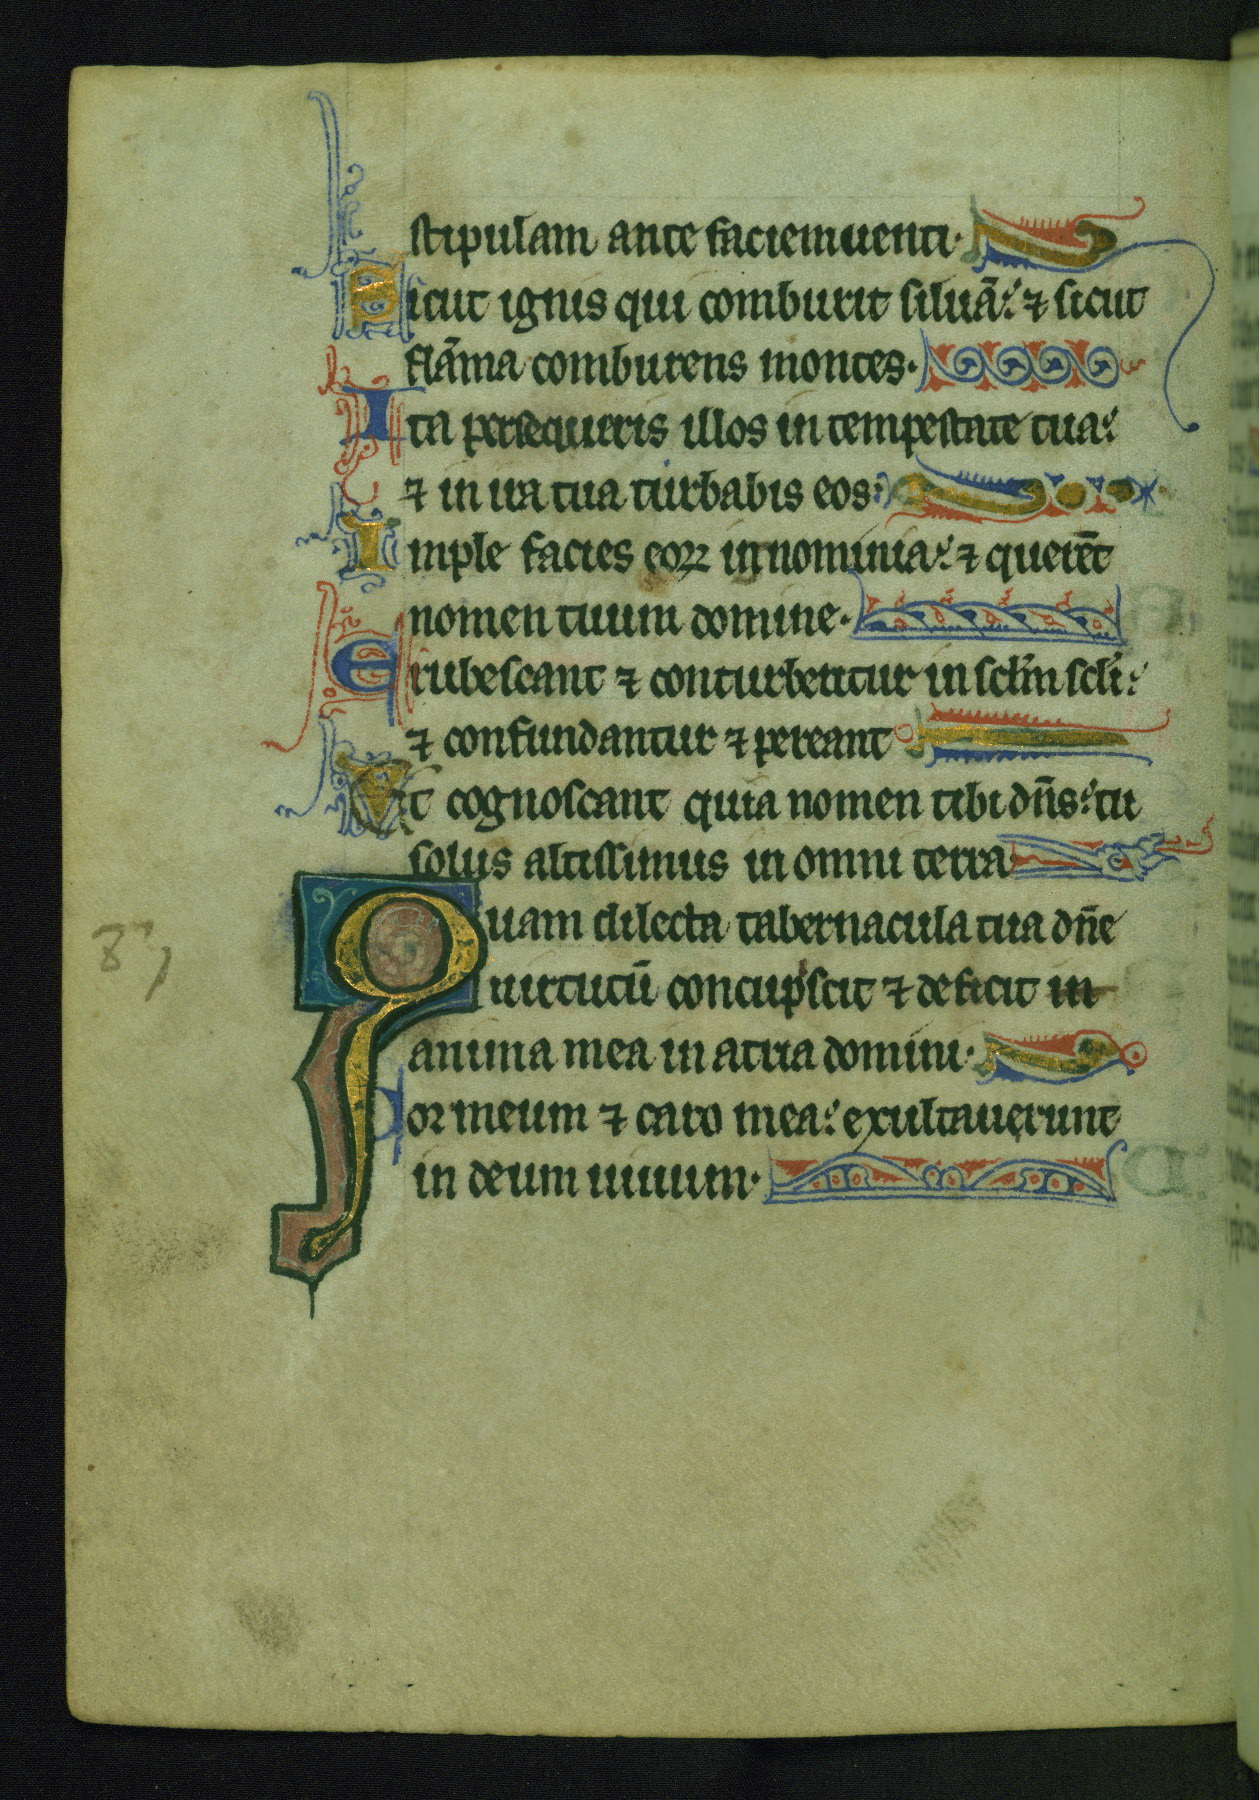 stipulam ante faciem uenti·
Sicut ignis qui comburit siluā: ⁊ sicut
flāma comburens montes·
Ita persequeris illos in tempestate tua:
⁊ in ira tua turbabis eos:
Imple facies eoꝝ innominia: ⁊ querēt
nomen tuum domine·
Erubescant ⁊ conturbentur in scl̄m scl̄i:
⁊ confundantur ⁊ pereant
Vt cognoscant quia nomen tibi dn̄s: tu
solus altissimus in omni terra
Quam dilecta tabernacula tua dn̄e
uirtutū concupiscit ⁊ deficit in
anima mea in atria domini·
Cor meum ⁊ caro mea: exultauerunt
in deum uiuum·